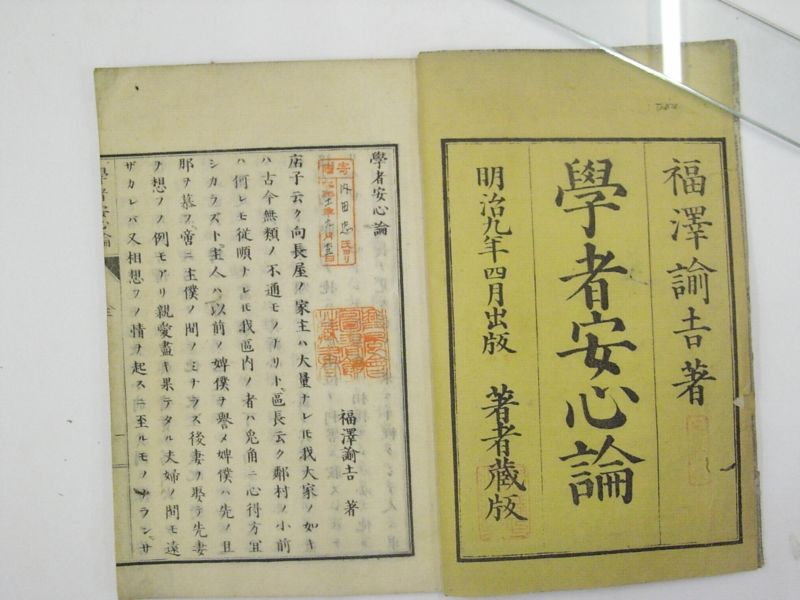 福澤諭吉著
學者安心論
明治九年四月出版　著者藏版
學者安心論
福澤諭吉　著
店子云ク向長屋ノ家主ハ大量ナレ𪜈我大家ノ如キ
ハ古今無類ノ不通モノナリト區長云ク鄰村ノ小前
ハ何レモ從順ナレ𪜈我區内ノ者ハ兎角ニ心得方宜
シカラズト主人ハ以前ノ婢僕ヲ譽メ婢僕ハ先ノ旦
那ヲ慕フ啻ニ主僕ノ間ノミナラズ後妻ヲ娶テ先妻
ヲ想フノ例モアリ親愛盡キ果テタル夫婦ノ間モ遠
ザカレバ又相想フノ情ヲ起スニ至ルモノナランサ
學者安心論